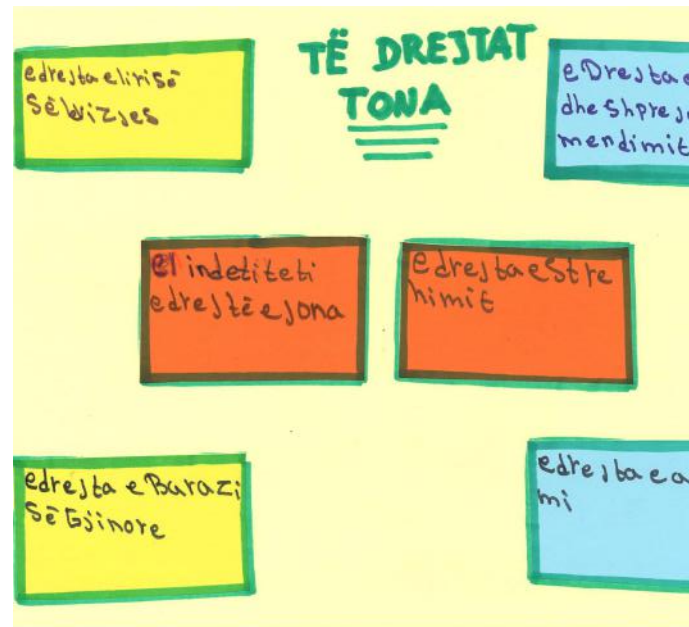 TË DREJTAT
TONA
edrejta elirisë
Sëlvizjes
eDrejta e
dhe Shpreje
mendimit
el indetiteti
edrejtë ejona
edrejtaeStre
himit
edrejta e Barazi
SëGjinore
edrejta e a
mi